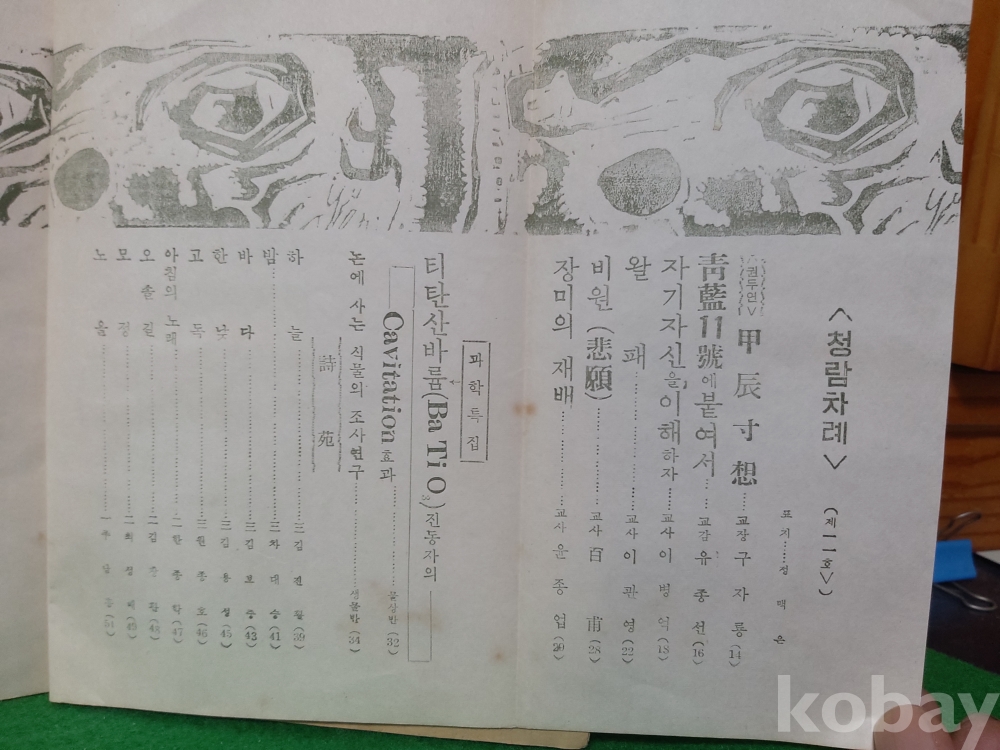 <청람차례>
(제11호>)
표지……정 택 은
<권두언>
甲辰寸想……교장 구 자 룡 (14)
靑藍11號에붙여서……교감 유 종 선 (16)
자기자신을이해하자……교사 이 병 억 (18)
왈 패……교사 이 관 영 (22)
비원 (悲願)……교사 百 甫 (28)
장미의 재배……교사 윤 종 업 (30)
과학특집
티탄산바륨(Ba Ti O₃)진동자의
Cavitation효과……물상반 (32)
논에 사는 식물의 조사연구……생물반 (34)
詩 苑
하 늘……三 김 (39)
밤……三 차 대 승 (41)
바 다……三 김 보 중 (43)
한 낮……三 김 용 성 (45)
고 독……三 원 종 호 (46)
아침의 노래……一 한 종 학 (47)
오솔길……二 김 (48)
모 정……二 최 정 (49)
노 을……一 주 (51)
kobay